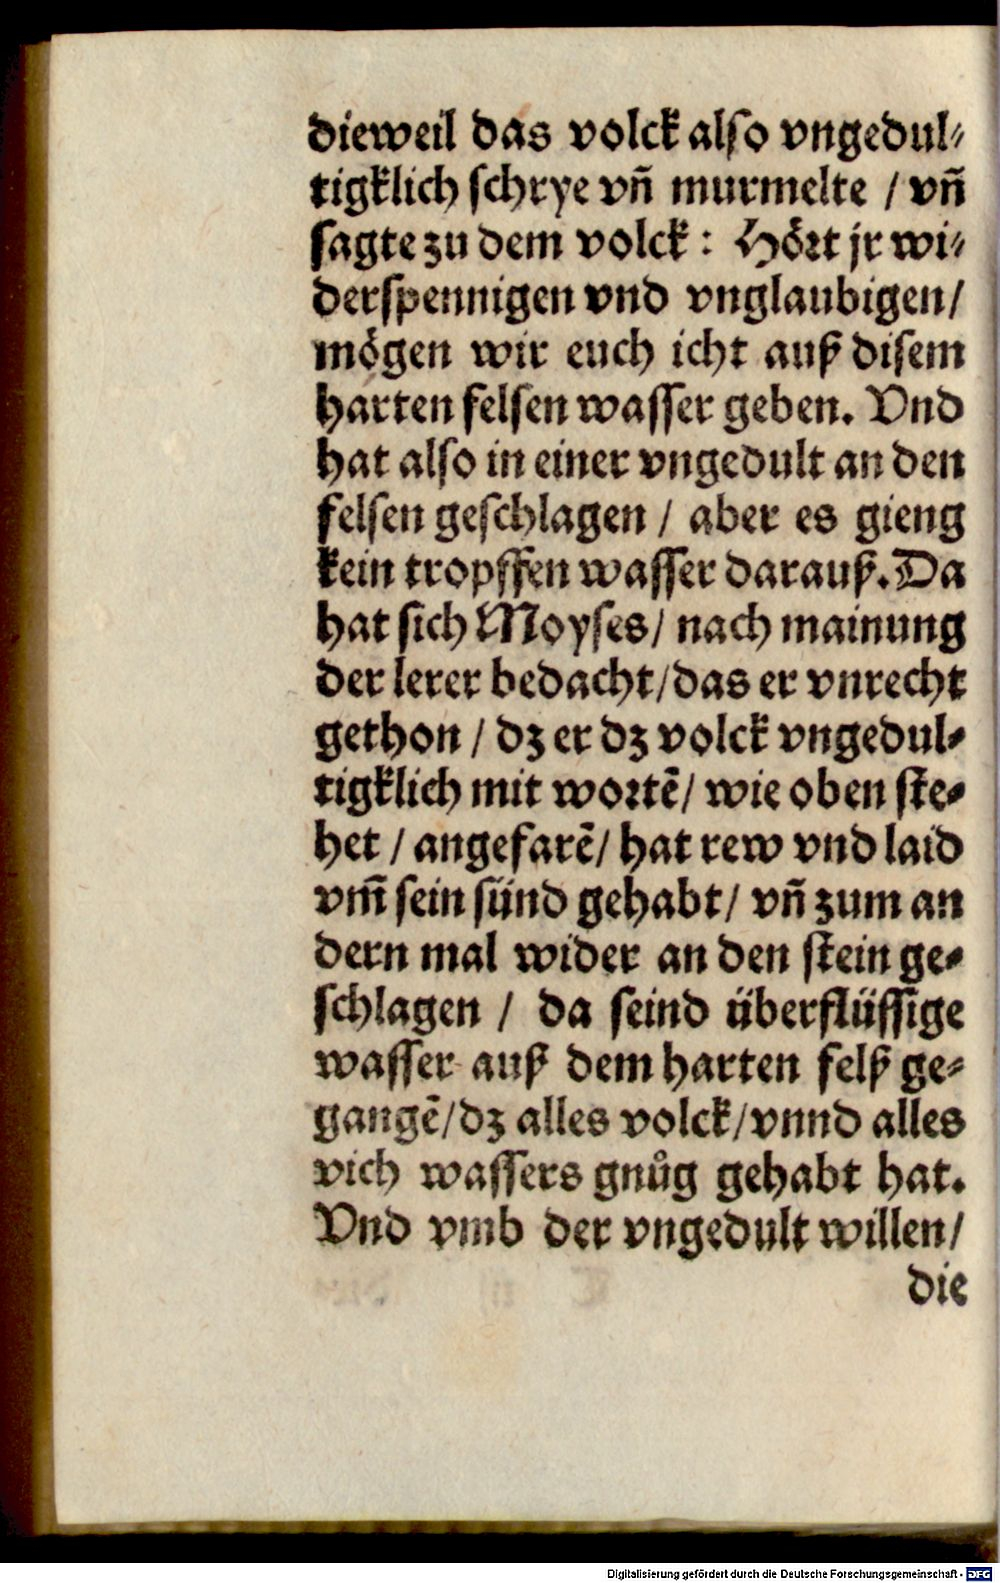 dieweil das volck also vngedul⸗
tigklich schrye vñ murmelte / vñ
sagte zu dem volck : Hoͤrt jr wi⸗
derspennigen vnd vnglaubigen/
moͤgen wir euch icht auß disem
harten felsen wasser geben. Vnd
hat also in einer vngedult an den
felsen geschlagen / aber es gieng
kein tropffen wasser darauß. Da
hat sich Moyses/ nach mainung
der lerer bedacht/das er vnrecht
gethon / dz er dz volck vngedul⸗
tigklich mit wortē/ wie oben ste⸗
het / angefarē/ hat rew vnd laid
vm̄ sein sünd gehabt/ vñ zum an
dern mal wider an den stein ge⸗
schlagen / da seind überflüssige
wasser auß dem harten felß ge⸗
gangē/dz alles volck/vnnd alles
vich wassers gnůg gehabt hat.
Vnd vmb der vngedult willen/
die
Digitalisierung gefördert durch die Deutsche Forschungsgemeinschaft - DFG